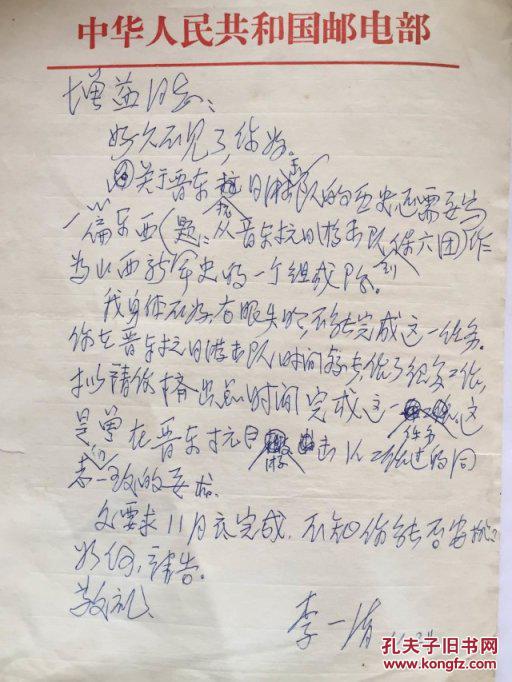 中华人民共和国邮电部
增益同志：
好久不见了，你好。
关于晋东抗日游击队的历史还需要写
一篇东西（题：从晋东抗日游击队到保六团）作
为山西新军史的一个组成部分。
我身体不好，右眼失明，不能完成这一任务。
你在晋东抗日游击队时间较长，做了很多工作，
拟请你挤出点时间完成这一任务，这
是曾在晋东抗日游击队工作过的同
志们一致的要求。
文要求11月底完成，不知你能否安排？
如何，请告。
敬礼
李一清
孔夫子旧书网
www.kongfz.com